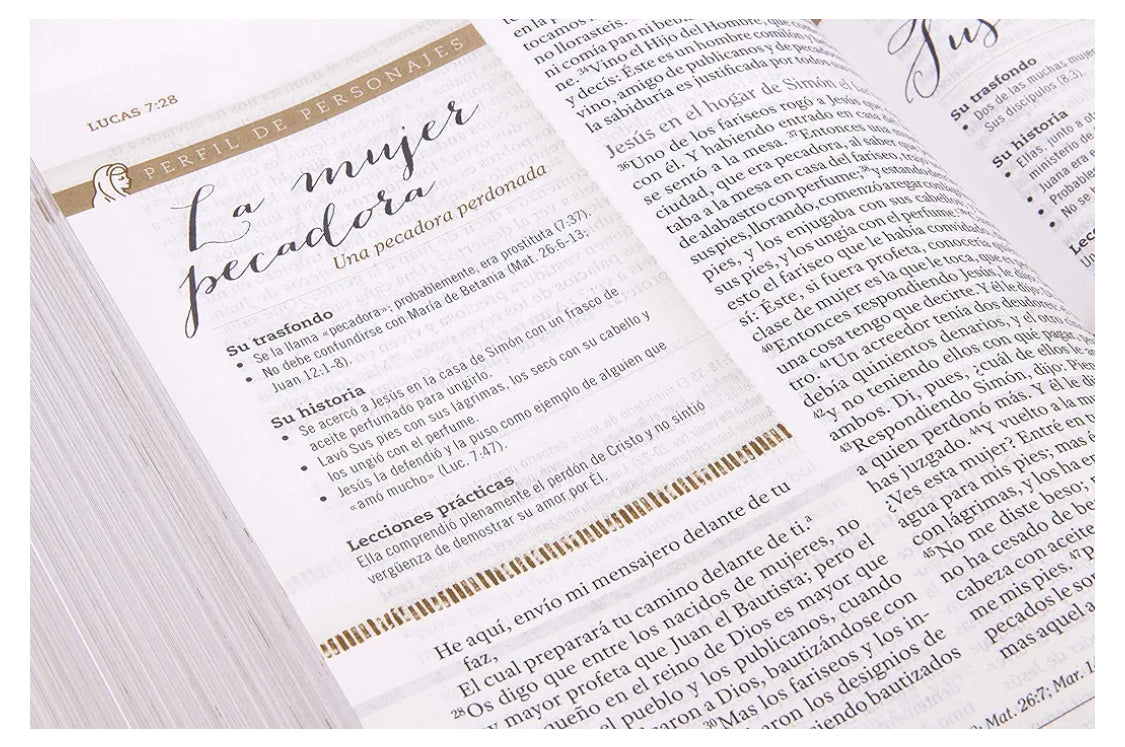 LUCAS 7:28
PERFIL DE PERSONAJES
La mujer
pecadora
Una pecadora perdonada
Su trasfondo
• Se la llama «pecadora»; probablemente, era prostituta (7:37).
• No debe confundirse con María de Betania (Mat. 26:6-13;
Juan 12:1-8).
Su historia
• Se acercó a Jesús en la casa de Simón con un frasco de
aceite perfumado para ungirlo.
• Lavó Sus pies con sus lágrimas, los secó con su cabello y
los ungió con el perfume.
• Jesús la defendió y la puso como ejemplo de alguien que
«amó mucho» (Luc. 7:47).
Lecciones prácticas
Ella comprendió plenamente el perdón de Cristo y no sintió
vergüenza de demostrar su amor por Él.
He aquí, envío mi mensajero delante de tu
faz,
El cual preparará tu camino delante de ti.ª
²⁸Os digo que entre los nacidos de mujeres, no
y mayor profeta que Juan el Bautista; pero el
queño en el reino de Dios es mayor que
el pueblo y los publicanos, cuando
aron a Dios, bautizándose con
³⁰Mas los fariseos y los in-
aron los designios de
iendo bautizados
en la p
tocamos
no llorasteis.
ni comía pan ni bebí
ne. ³⁴Vino el Hijo del Hombre, que com
y decís: Éste es un hombre comilón y be
vino, amigo de publicanos y de pecado
la sabiduría es justificada por todos su
Jesús en el hogar de Simón el fa
³⁶Uno de los fariseos rogó a Jesús que
con él. Y habiendo entrado en casa de
se sentó a la mesa. ³⁷Entonces una mu
ciudad, que era pecadora, al saber que
taba a la mesa en casa del fariseo, trajo
de alabastro con perfume; ³⁸y estando detr
sus pies, llorando, comenzó a regar con lág
pies, y los enjugaba con sus cabellos
sus pies, y los ungía con el perfume. ³⁹C
esto el fariseo que le había convidado
sí: Éste, si fuera profeta, conocería qui
clase de mujer es la que le toca, que es p
⁴⁰Entonces respondiendo Jesús, le dijo
una cosa tengo que decirte. Y él le dijo
tro: ⁴¹Un acreedor tenía dos deudores
debía quinientos denarios, y el otro cin
⁴²y no teniendo ellos con qué pagar, per
ambos. Di, pues, ¿cuál de ellos le am
⁴³Respondiendo Simón, dijo: Pien
a quien perdonó más. Y él le dij
has juzgado. ⁴⁴Y vuelto a la mu
¿Ves esta mujer? Entré en tu
agua para mis pies; mas é
con lágrimas, y los ha en
⁴⁵No me diste beso; m
no ha cesado de be
cabeza con aceite
me mis pies. ⁴⁷P
pecados le son
mas aquel a
Mat. 26:7; Mar. 14
Jus
Su trasfondo
• Dos de las muchas mujer
Sus discípulos (8.3).
Su historia
• Ellas, junto a ot
ministerio de
Juana era e
• Probable
• No se h
Lec